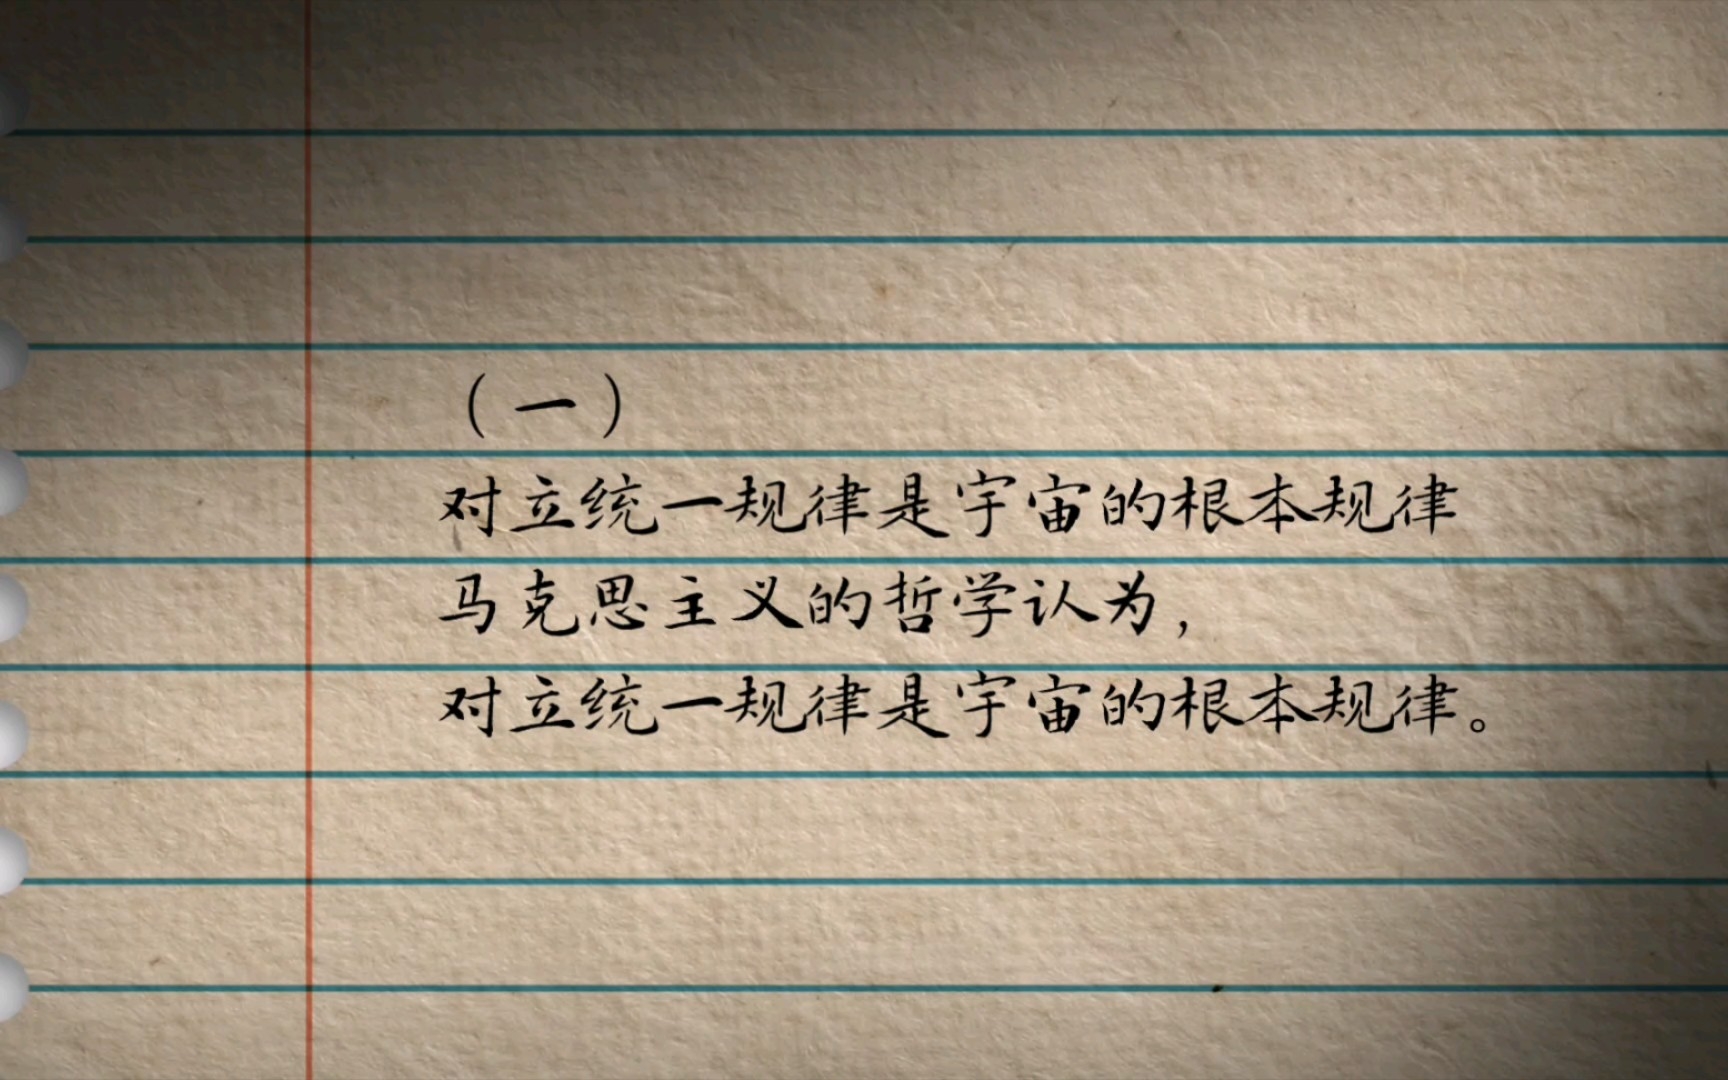 （一）
对立统一规律是宇宙的根本规律
马克思主义的哲学认为，
对立统一规律是宇宙的根本规律。